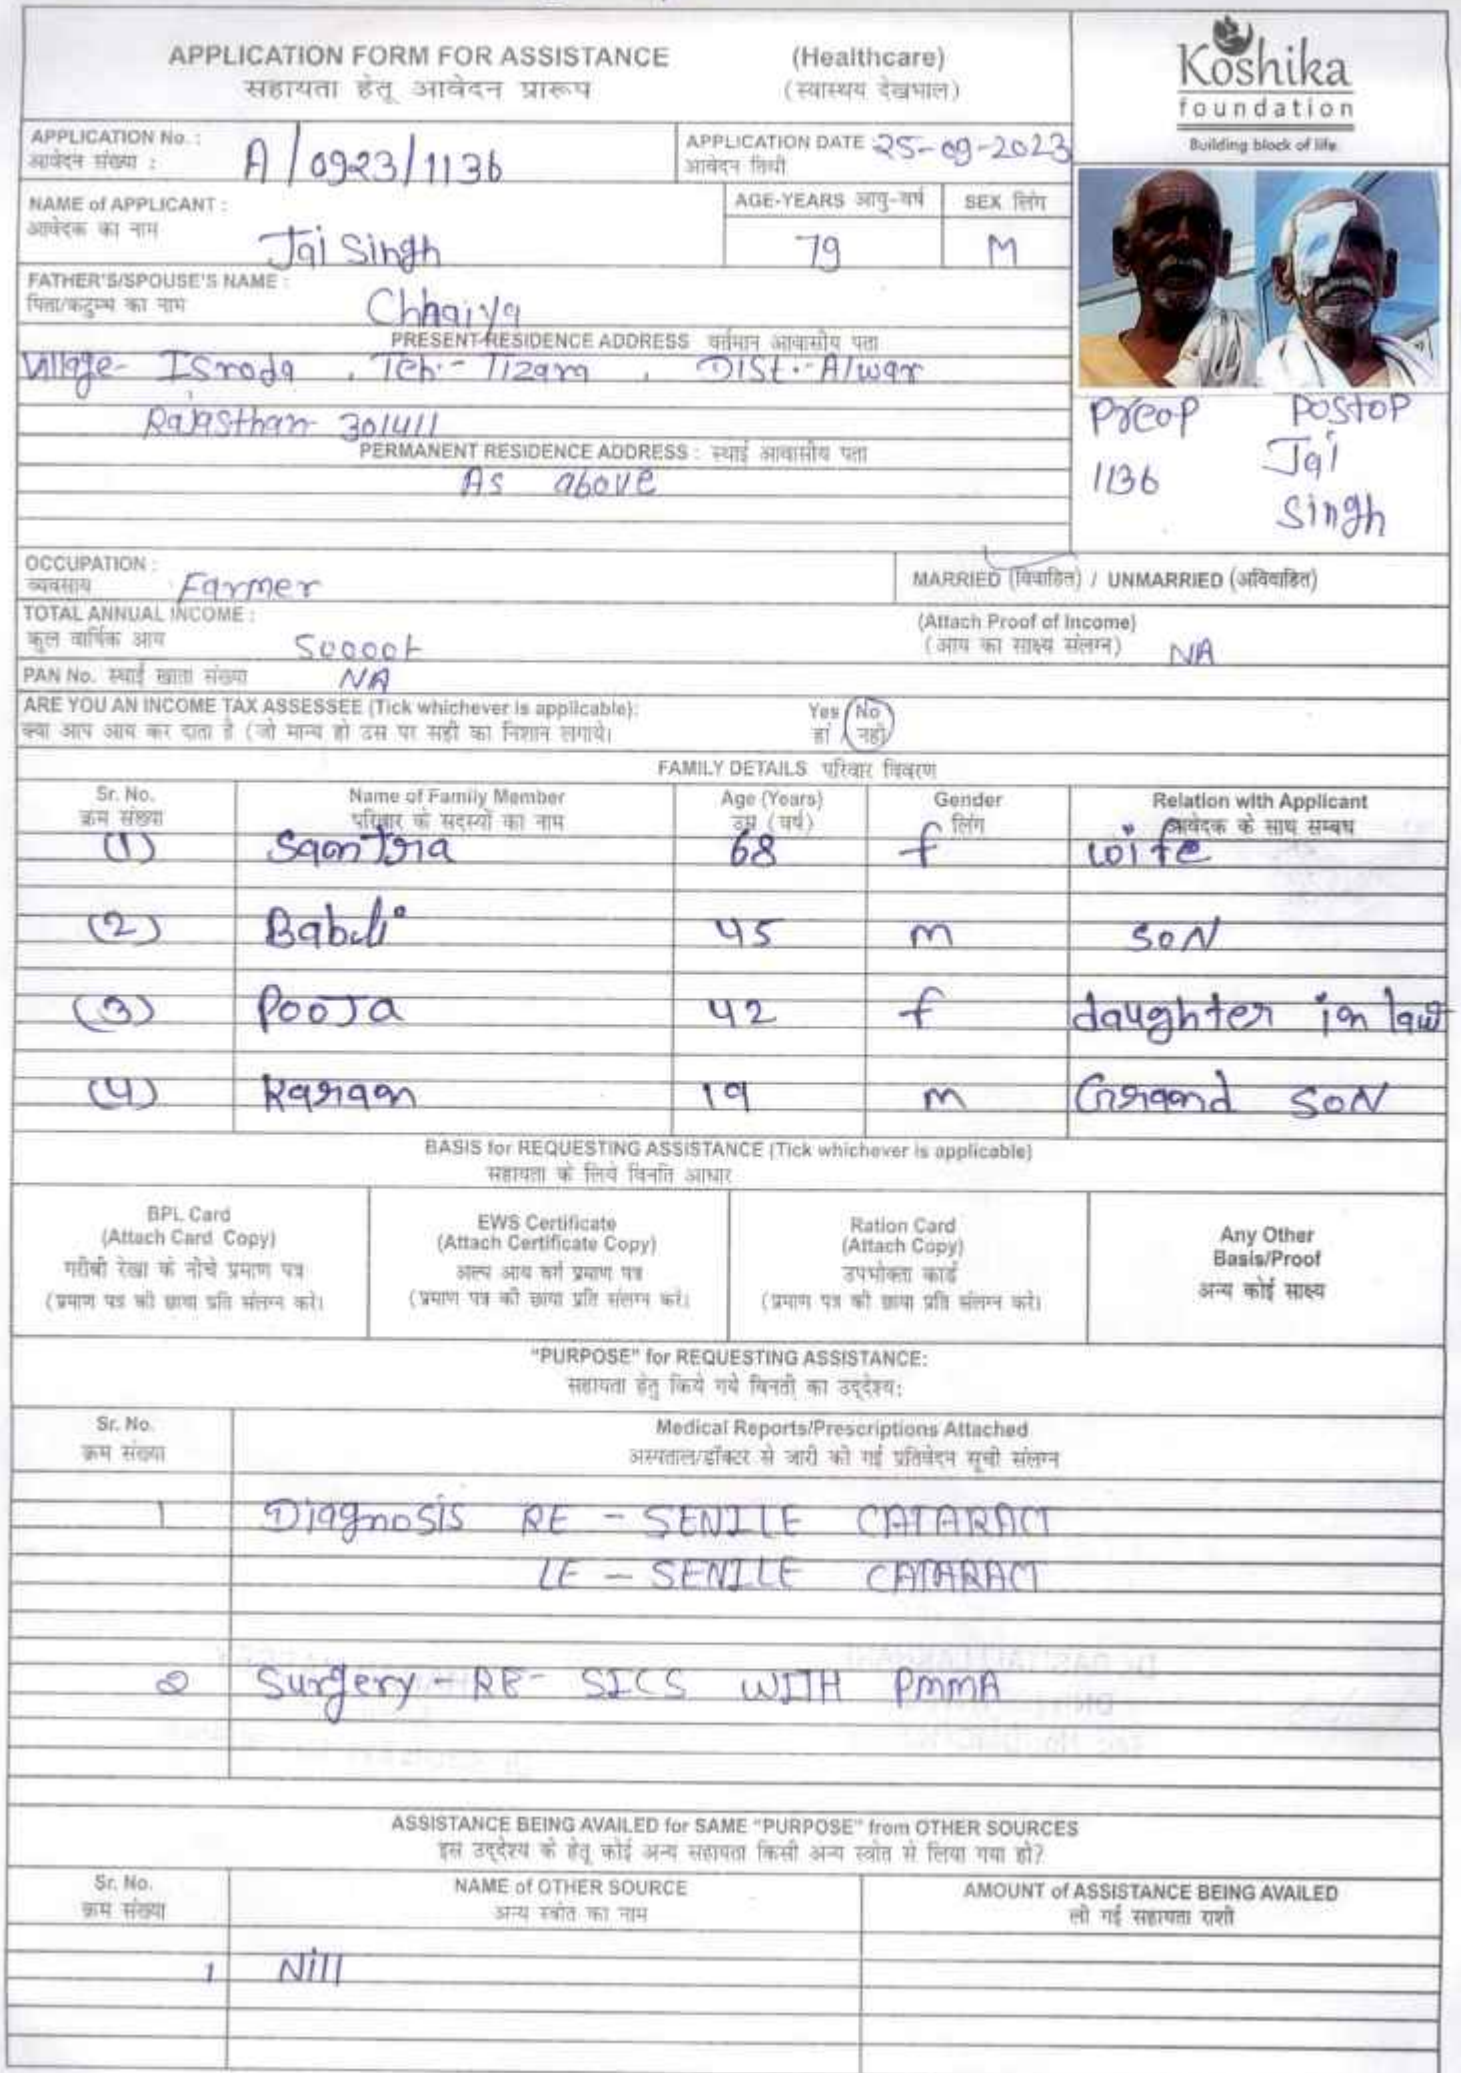 APPLICATION FORM FOR ASSISTANCE (Healthcare)
सहायता हेतू आवेदन प्रारूप (स्वास्थय देखभाल)
Koshika
foundation
Building block of life
APPLICATION No. : A/0923/1136 APPLICATION DATE 25-09-2023
आवेदन संख्या : आवेदन तिथी
NAME of APPLICANT : AGE-YEARS आयु-वर्ष SEX लिंग
आवेदक का नाम Jai Singh 79 M
FATHER'S/SPOUSE'S NAME :
पिता/कटुम्ब का नाम Chhaiya
PRESENT RESIDENCE ADDRESS वर्तमान आवासीय पता
Village- Isroda , Teh:- Tizara , Dist.-Alwar
Rajasthan 301411
PERMANENT RESIDENCE ADDRESS : स्थाई आवासीय पता
As above
Preop Postop
1136 Jai
Singh
OCCUPATION :
व्यवसाय Farmer MARRIED (विवाहित) / UNMARRIED (अविवाहित)
TOTAL ANNUAL INCOME : (Attach Proof of Income)
कुल वार्षिक आय (आय का साक्ष्य संलग्न) NA
PAN No. स्थाई खाता संख्या NA
ARE YOU AN INCOME TAX ASSESSEE (Tick whichever is applicable): Yes No
क्या आप आय कर दाता है (जो मान्य हो उस पर सही का निशान लगाये। हां नही
FAMILY DETAILS परिवार विवरण
Sr. No. Name of Family Member Age (Years) Gender Relation with Applicant
क्रम संख्या परिवार के सदस्यों का नाम उम्र (वर्ष) लिंग आवेदक के साथ सम्बध
(1) Santra 68 f wife
(2) Babli 45 m SON
(3) Pooja 42 f daughter in law
(4) Karan 19 m Grand SON
BASIS for REQUESTING ASSISTANCE (Tick whichever is applicable)
सहायता के लिये विनति आधार
BPL Card
(Attach Card Copy)
गरीबी रेखा के नीचे प्रमाण पत्र
(प्रमाण पत्र की छाया प्रति संलग्न करे।
EWS Certificate
(Attach Certificate Copy)
अल्प आय वर्ग प्रमाण पत्र
(प्रमाण पत्र की छाया प्रति संलग्न करे।
Ration Card
(Attach Copy)
उपभोक्ता कार्ड
(प्रमाण पत्र की छाया प्रति संलग्न करे।
Any Other
Basis/Proof
अन्य कोई साक्ष्य
"PURPOSE" for REQUESTING ASSISTANCE:
सहायता हेतु किये गये विनती का उद्देश्य:
Sr. No. Medical Reports/Prescriptions Attached
क्रम संख्या अस्पताल/डॉक्टर से जारी की गई प्रतिवेदन सूची संलग्न
1 Diagnosis RE - SENILE CATARACT
LE - SENILE CATARACT
2 Surgery - RE- SICS WITH PMMA
ASSISTANCE BEING AVAILED for SAME "PURPOSE" from OTHER SOURCES
इस उद्देश्य के हेतू कोई अन्य सहायता किसी अन्य स्त्रोत से लिया गया हो?
Sr. No. NAME of OTHER SOURCE AMOUNT of ASSISTANCE BEING AVAILED
क्रम संख्या अन्य स्त्रोत का नाम ली गई सहायता राशी
1 Nill